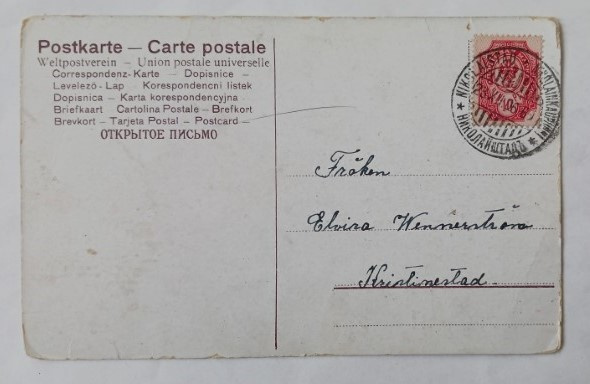 Postkarte — Carte postale
Weltpostverein – Union postale universelle
Correspondenz-Karte – Dopisnice –
Levelező-Lap – Korespondencni listek
Dopisnica – Karta korespondencyjna –
Briefkaart – Cartolina Postale – Brefkort
Brevkort – Tarjeta Postal – Postcard –
ОТКРЫТОЕ ПИСЬМО
НИКОЛАЙШТАДЪ
Fröken
Elvira Wennerström
Kristinestad.